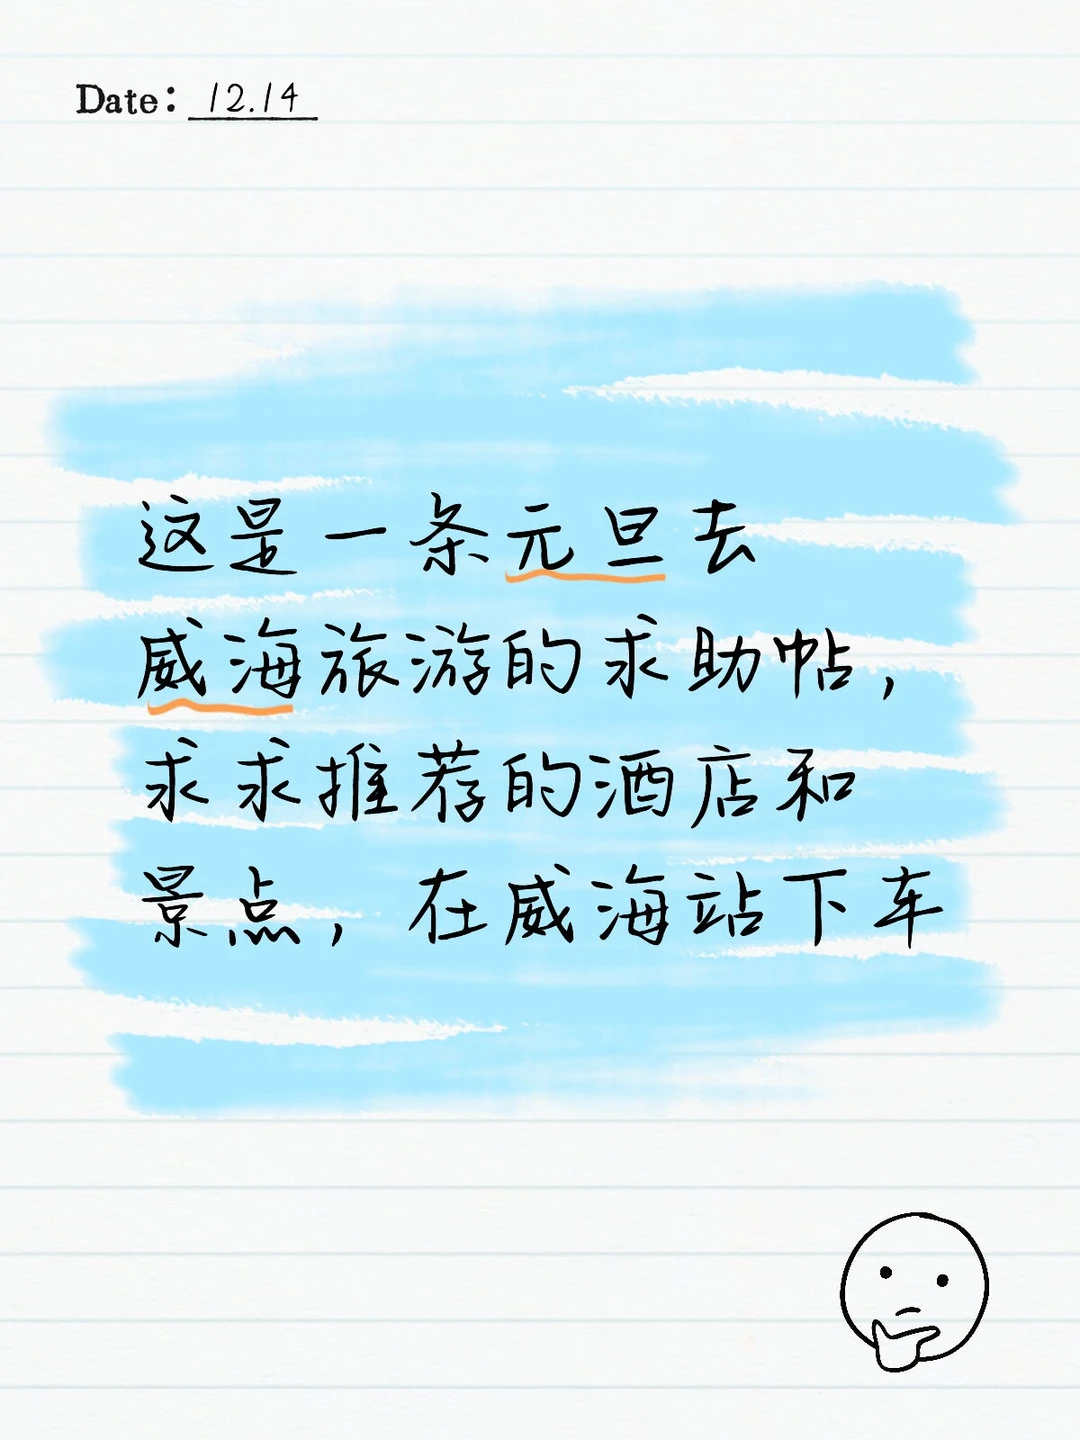 Date: 12.14
这是一条元旦去
威海旅游的求助帖，
求求推荐的酒店和
景点，在威海站下车